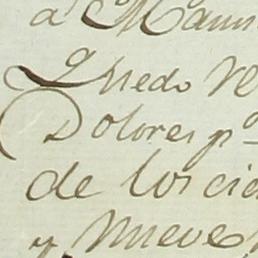 a Manu
Quedo Ve
Dolores p
de los cie
y Nueve